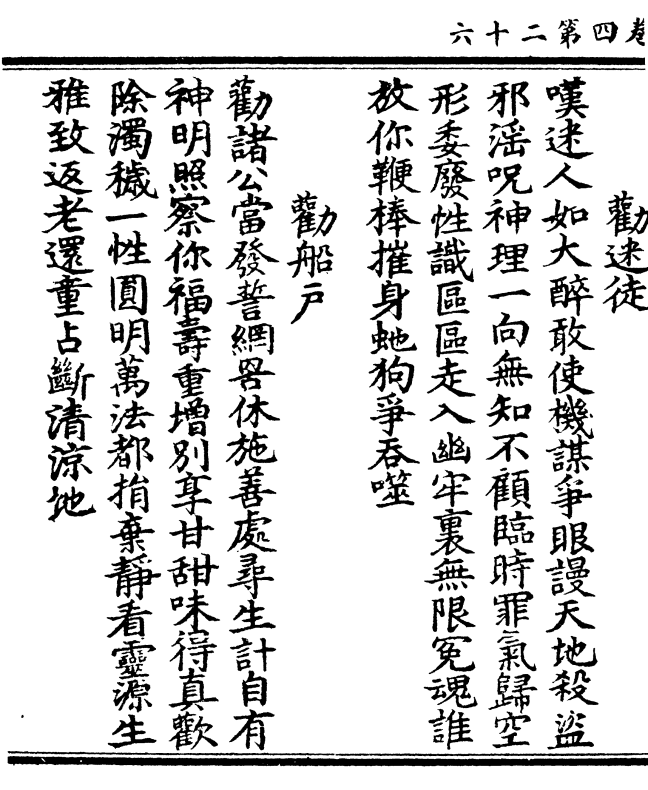 卷四第二十六
勸迷徒
嘆迷人如大醉敢使機謀爭眼謾天地殺盜
邪滛呪神理一向無知不顧臨時罪氣歸空
形委廢性識區區走入幽牢裏無限冤魂誰
放你鞭棒摧身虵狗爭吞噬
勸船戶
勸諸公當發誓網罟休施善處尋生計自有
神明照察你福壽重增別享甘甜味得真歡
除濁穢一性圓明萬法都捐棄靜看靈源生
雅致返老還童占斷清涼地